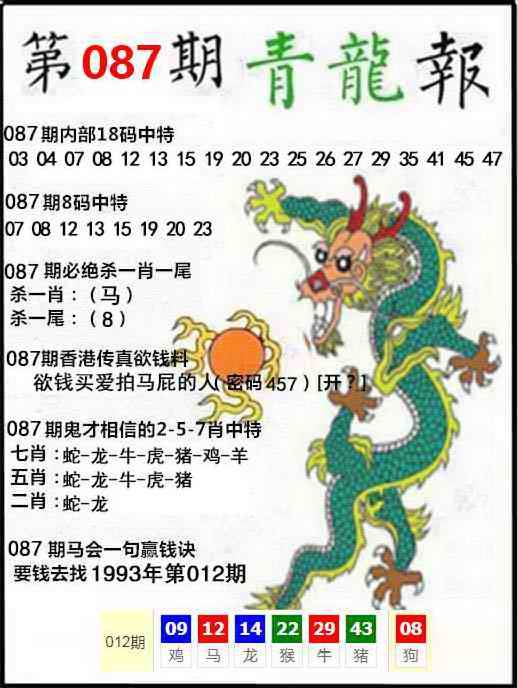 第087期青龍報
087期内部18码中特
03 04 07 08 12 13 15 19 20 23 25 26 27 29 35 41 45 47
087期8码中特
07 08 12 13 15 19 20 23
087期必绝杀一肖一尾
杀一肖：（马）
杀一尾：（8）
087期香港传真欲钱料
欲钱买爱拍马屁的人（密码457）[开？]
087期鬼才相信的2-5-7肖中特
七肖：蛇-龙-牛-虎-猪-鸡-羊
五肖：蛇-龙-牛-虎-猪
二肖：蛇-龙
087期马会一句赢钱诀
要钱去找1993年第012期
012期 09 12 14 22 29 43 08
鸡 马 龙 猴 牛 猪 狗